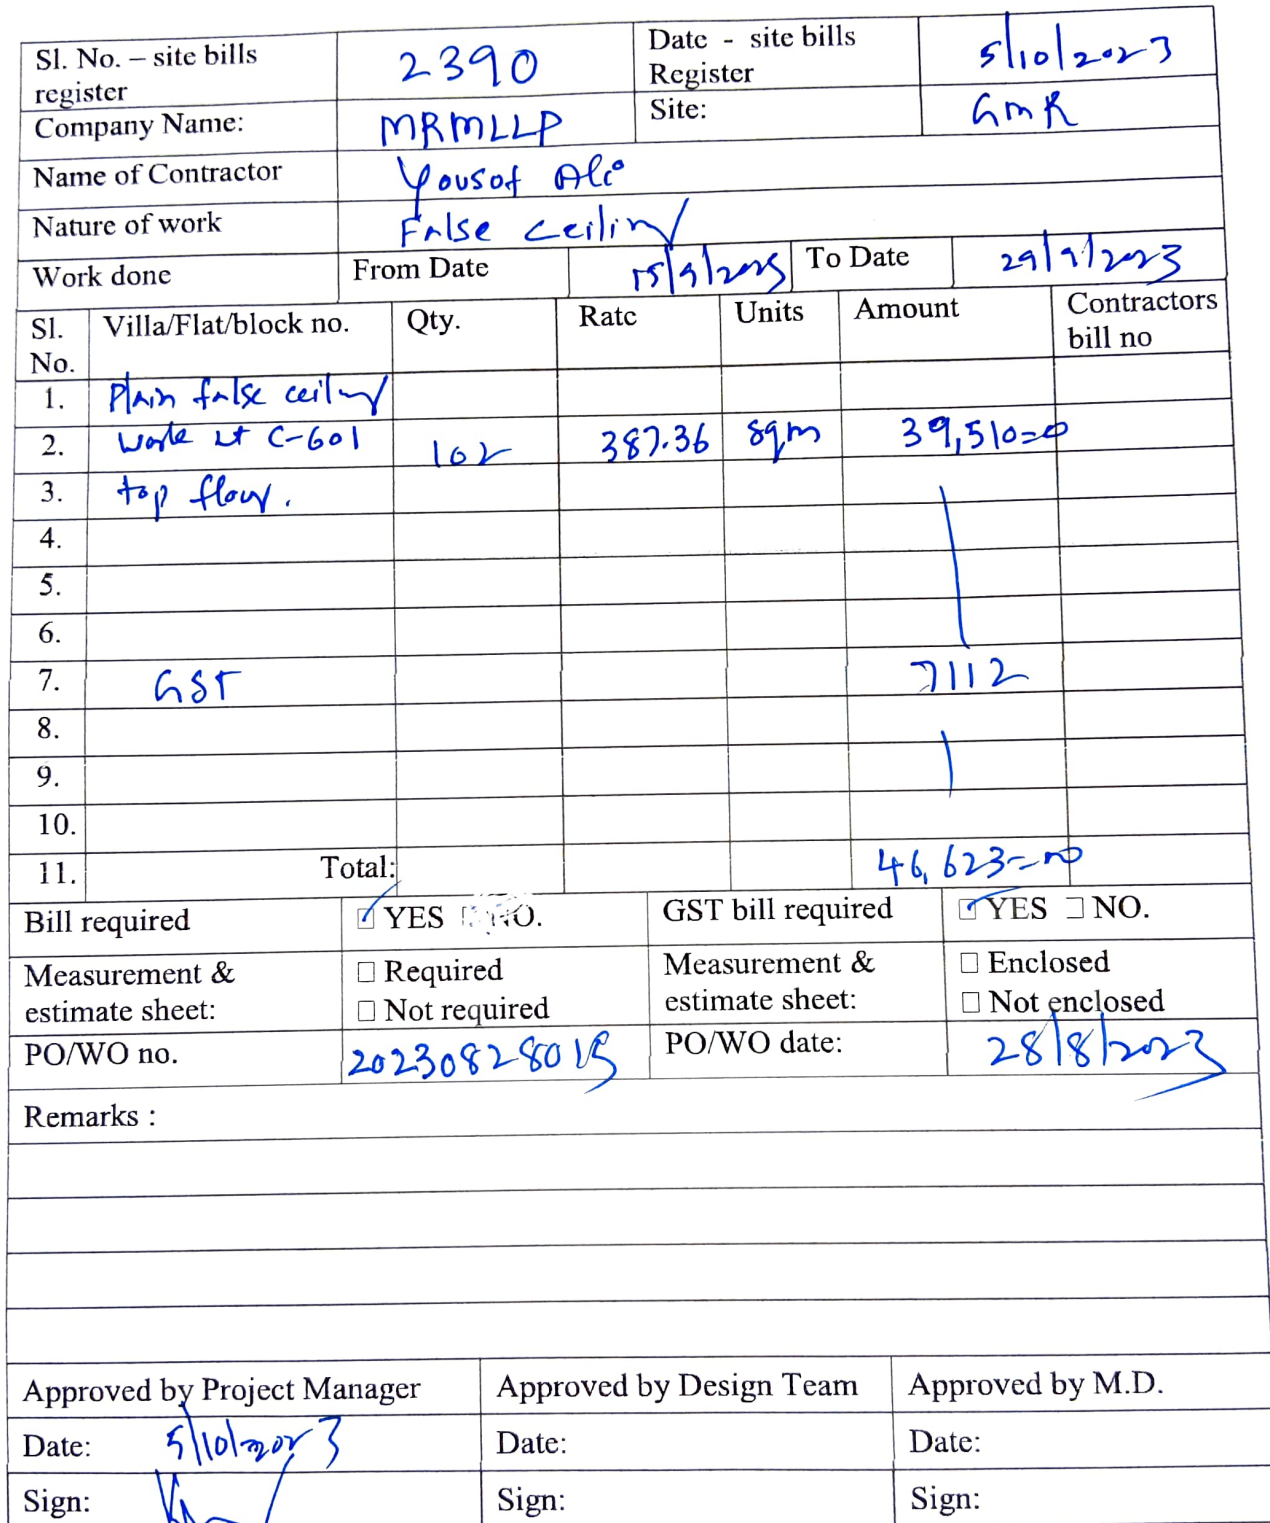 Sl. No. – site bills register 2390 Date - site bills Register 5/10/2023
Company Name: MRMLLP Site: GMR
Name of Contractor Yousof Ali
Nature of work False ceiling
Work done From Date 15/9/2023 To Date 29/9/2023
Sl. No. Villa/Flat/block no. Qty. Rate Units Amount Contractors bill no
1. Plain false ceiling
2. work at C-601 102 387.36 sqm 39,510=00
3. top floor.
4.
5.
6.
7. GST 7112
8.
9.
10.
11. Total: 46,623=00
Bill required YES NO. GST bill required YES NO.
Measurement & estimate sheet: Required Not required Measurement & estimate sheet: Enclosed Not enclosed
PO/WO no. 20230828015 PO/WO date: 28/8/2023
Remarks :
Approved by Project Manager Approved by Design Team Approved by M.D.
Date: 5/10/2023 Date: Date:
Sign: Sign: Sign: